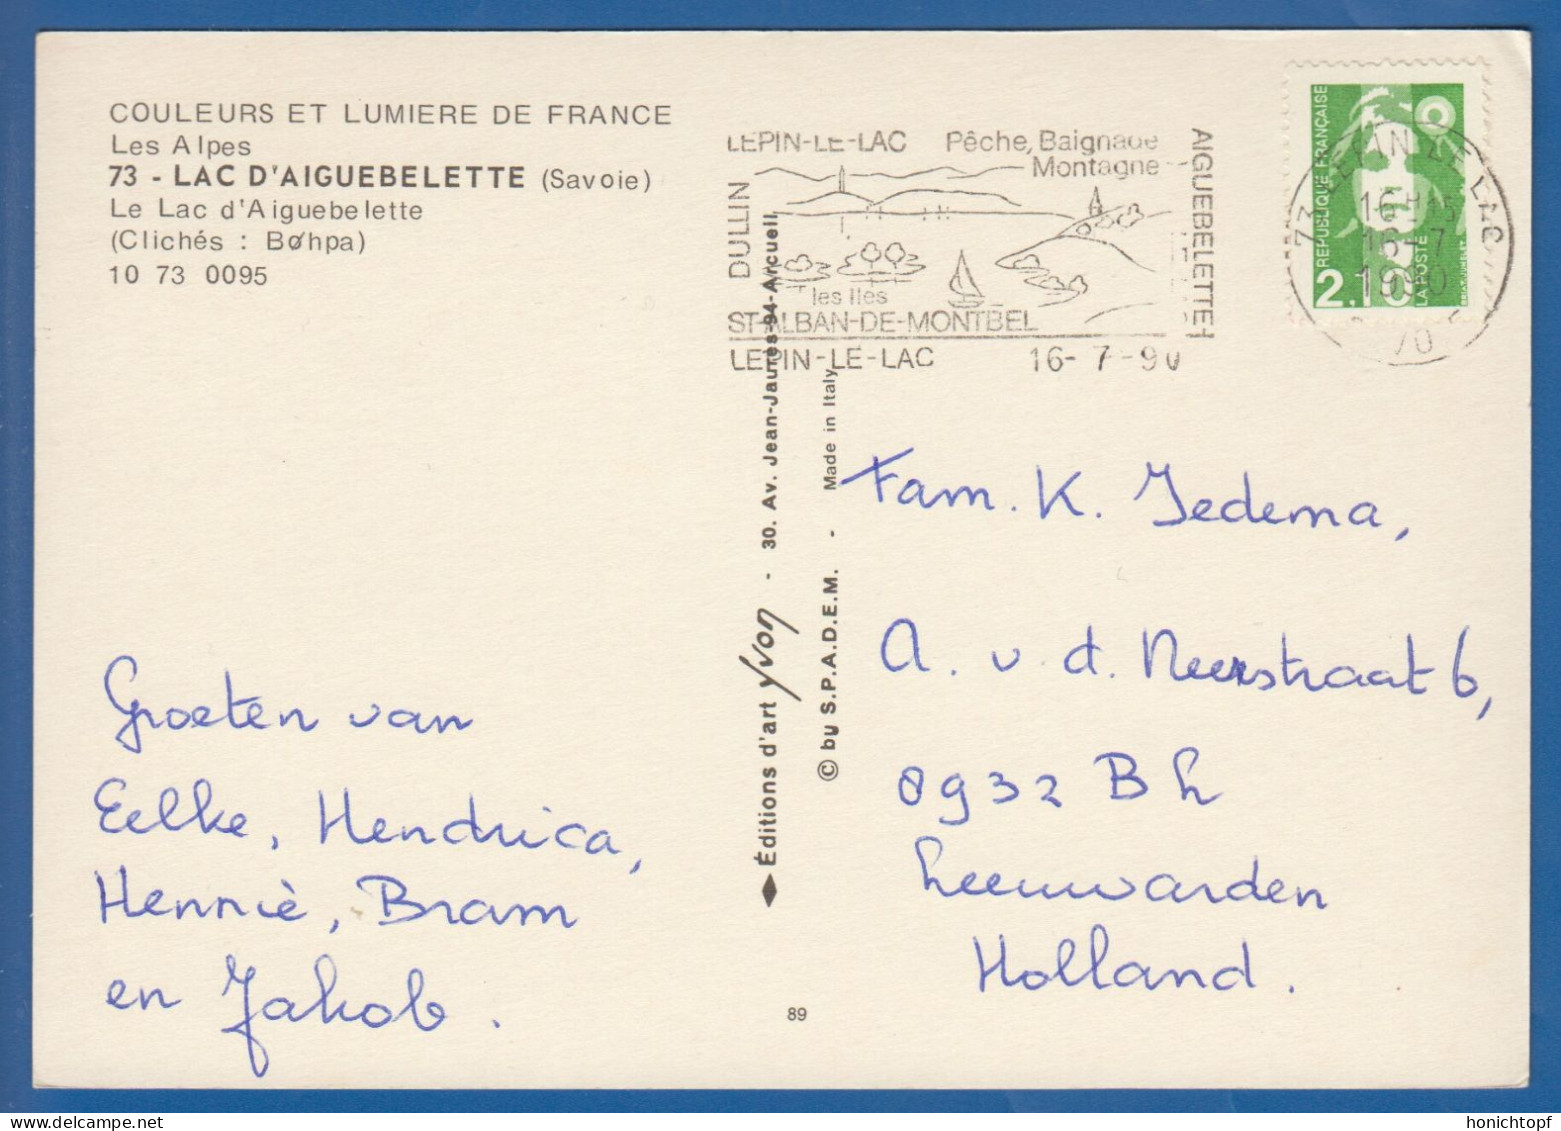 COULEURS ET LUMIERE DE FRANCE
Les Alpes
73 - LAC D'AIGUEBELETTE (Savoie)
Le Lac d'Aiguebelette
(Clichés : Bohpa)
10 73 0095
Groeten van
Eelke, Hendrica,
Hennie, Bram
en Jakob.
Éditions d'art Yvon - 30. Av. Jean-Jaurès-94-Arcueil
© by S.P.A.D.E.M. - Made in Italy
89
LEPIN-LE-LAC Pêche, Baignade
Montagne
DULLIN
AIGUEBELETTE
les Iles
ST-ALBAN-DE-MONTBEL
LEPIN-LE-LAC 16-7-90
REPUBLIQUE FRANÇAISE
2,10
LA POSTE
73 LEPIN LE LAC
16H15
16-7
1990
Fam. K. Jedema,
A. v. d. Neerstraat 6,
8932 BL
Leeuwarden
Holland.
honichtopf